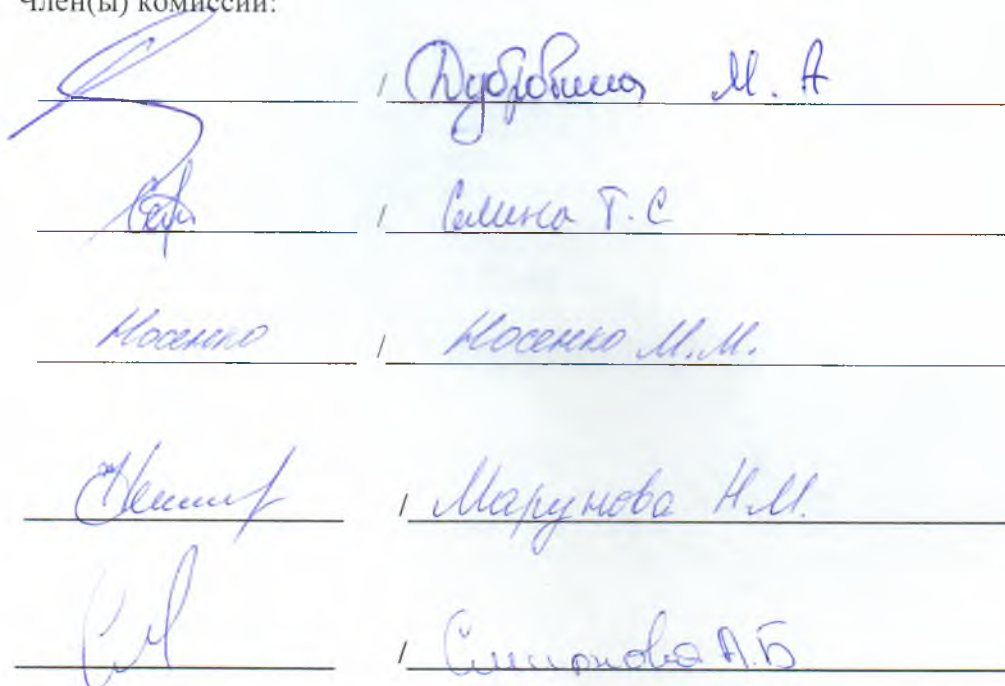 Член(ы) комиссии:
/ Дубровина М. А
/ Семина Т. С
Носенко / Носенко М.М.
/ Марунова Н.М.
/ Смирнова А.Б